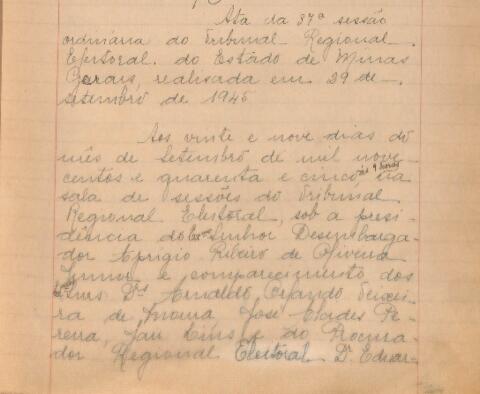 Ata da 37ª sessão
ordinaria do Tribunal Regional
Eleitoral do Estado de Minas
Gerais, realisada em 29 de
setembro de 1945
Aos vinte e nove dias do
mês de Setembro de mil nove-
centos e quarenta e cinco, ás 9 horas, na
sala de sessões do Tribunal
Regional Eleitoral, sob a presi-
dencia do Senhor Desembarga-
dor Aprigio Ribeiro de Oliveira
Junior e comparecimento dos
Drs Arnaldo, Orlando Teixei-
ra de Moura, José Alcides Pe-
reira, e do Procura-
dor Regional Eleitoral Dr. Edgar-